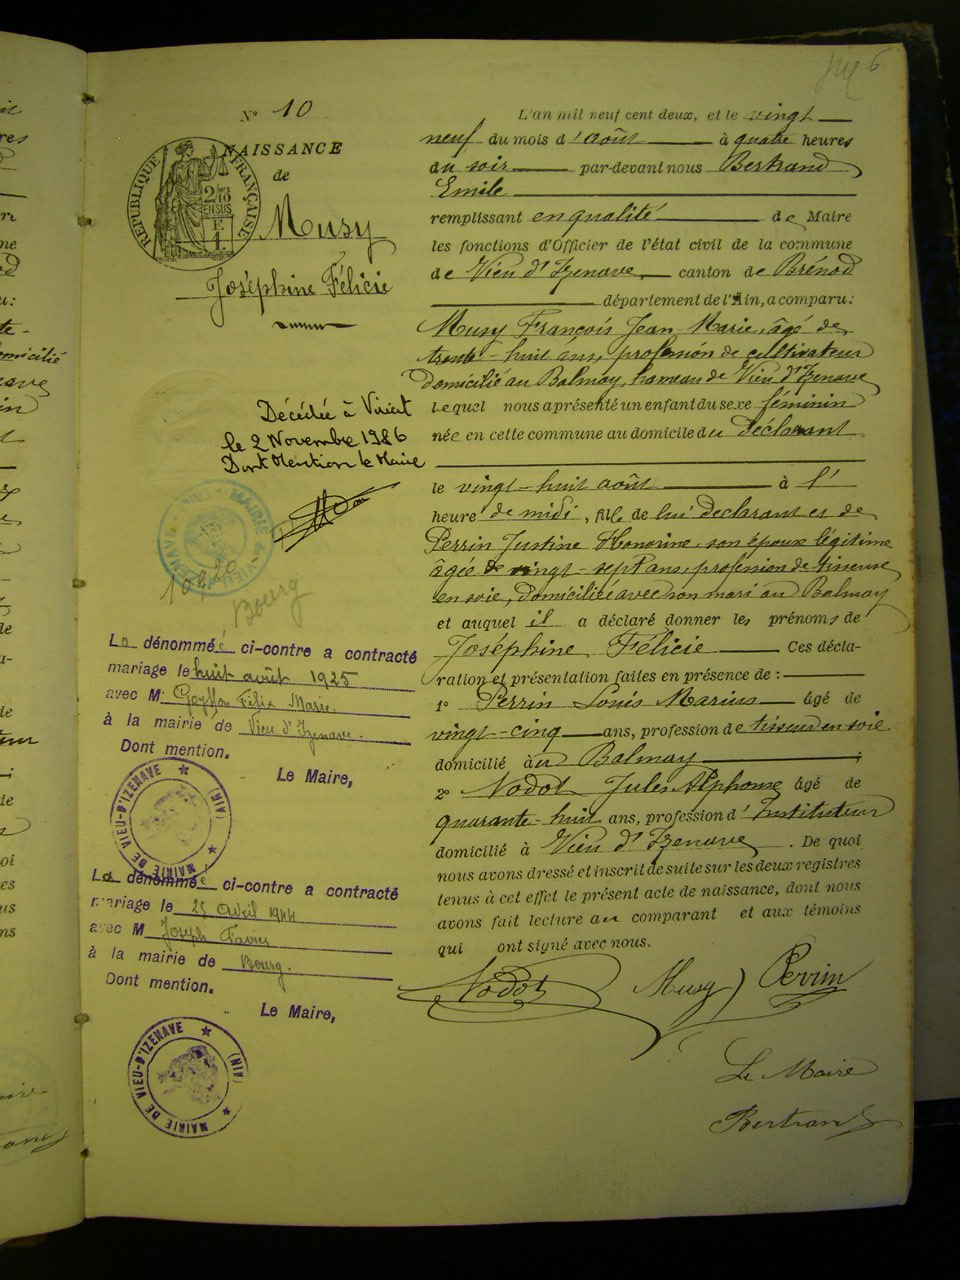 6
N° 10
NAISSANCE
de
Musy
Joséphine Félicie
RÉPUBLIQUE FRANÇAISE
L'an mil neuf cent deux, et le vingt
neuf du mois d'Août à quatre heures
du soir par-devant nous Bertrand
Emile
remplissant en qualité de Maire
les fonctions d'Officier de l'état civil de la commune
de Vieu d'Izenave, canton de Brénod
département de l'Ain, a comparu :
Musy François Jean-Marie, âgé de
trente-huit ans, profession de cultivateur
domicilié au Balmay, hameau de Vieu d'Izenave
lequel nous a présenté un enfant du sexe féminin
née en cette commune au domicile du déclarant
le vingt-huit août à l'
heure de midi, fille de lui déclarant et de
Perrin Justine Honorine, son épouse légitime
âgée de vingt-sept ans, profession de tisseuse
en soie, domiciliée avec son mari au Balmay
et auquel il a déclaré donner les prénoms de
Joséphine Félicie Ces décla-
ration et présentation faites en présence de :
1° Perrin Louis Marius âgé de
vingt-cinq ans, profession de tisseur en soie
domicilié au Balmay
2° Nodot Jules Alphonse âgé de
quarante-huit ans, profession d'Instituteur
domicilié à Vieu d'Izenave. De quoi
nous avons dressé et inscrit de suite sur les deux registres
tenus à cet effet le présent acte de naissance, dont nous
avons fait lecture au comparant et aux témoins
qui ont signé avec nous.
Nodot Musy Perrin
Le Maire
Bertrand
Décédée à Viriat
le 2 Novembre 1986
Dont Mention le Maire
Bourg
La dénommée ci-contre a contracté
mariage le huit août 1925
avec M Goyffon Félix Marie
à la mairie de Vieu d'Izenave.
Dont mention.
Le Maire,
MAIRIE DE VIEU-D'IZENAVE (AIN)
La dénommée ci-contre a contracté
mariage le 25 Avril 1944
avec M Joseph Favier
à la mairie de Bourg.
Dont mention.
Le Maire,
MAIRIE DE VIEU-D'IZENAVE (AIN)